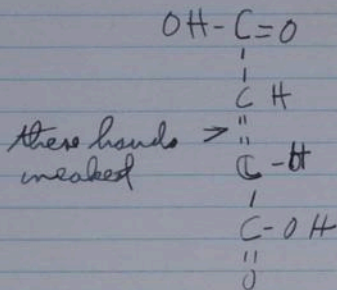 OH-C=O
CH
these bonds >
weaked
C-H
C-OH
O